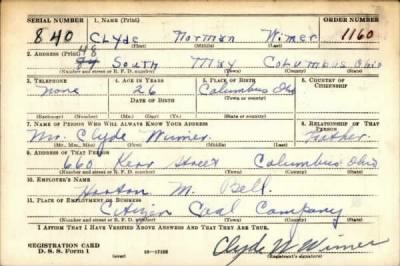 SERIAL NUMBER 1. NAME (Print) ORDER NUMBER
840 Clyde Norman Wimer 1160
(First) (Middle) (Last)
2. ADDRESS (Print)
48
South May Columbus Ohio
(Number and street or R. F. D. number) (Town) (County) (State)
3. TELEPHONE 4. AGE IN YEARS 5. PLACE OF BIRTH 6. COUNTRY OF CITIZENSHIP
None 26 Columbus Ohio
DATE OF BIRTH
(Exchange) (Number) (Mo.) (Day) (Yr.) (Town) (County) (State or country)
7. NAME OF PERSON WHO WILL ALWAYS KNOW YOUR ADDRESS 8. RELATIONSHIP OF THAT PERSON
Mr. Clyde Wimer Father
(Mr., Mrs., Miss) (First) (Middle) (Last)
9. ADDRESS OF THAT PERSON
660 Kerr Street Columbus Ohio
(Number and street or R. F. D. number) (Town) (County) (State)
10. EMPLOYER'S NAME
M. Bell
11. PLACE OF EMPLOYMENT OR BUSINESS
Citizen Coal Company
(Number and street or R. F. D. number) (Town) (County) (State)
I AFFIRM THAT I HAVE VERIFIED ABOVE ANSWERS AND THAT THEY ARE TRUE.
REGISTRATION CARD
D. S. S. Form 1 (over) Clyde N Wimer
(Registrant's signature)